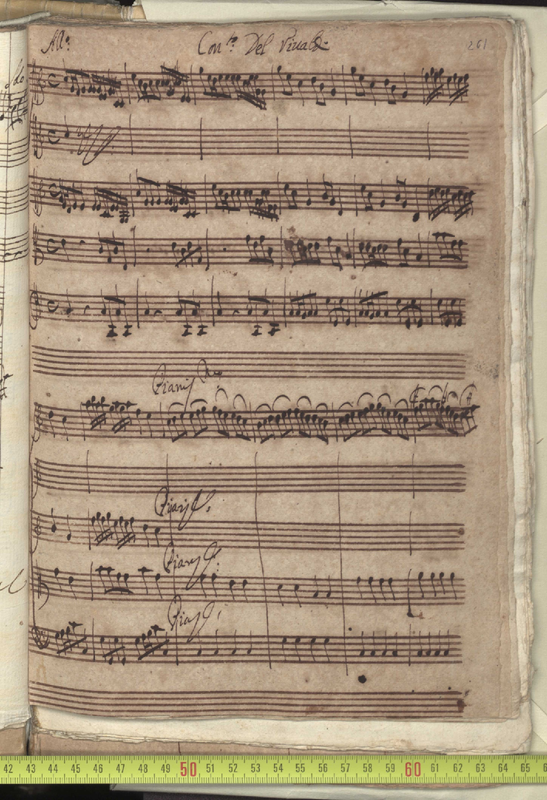 All:º Con:to Del Viualdi 261
Pianiss:º
Pianiss:º
Pianiss:º
Pianiss:º
42 43 44 45 46 47 48 49 50 51 52 53 54 55 56 57 58 59 60 61 62 63 64 65